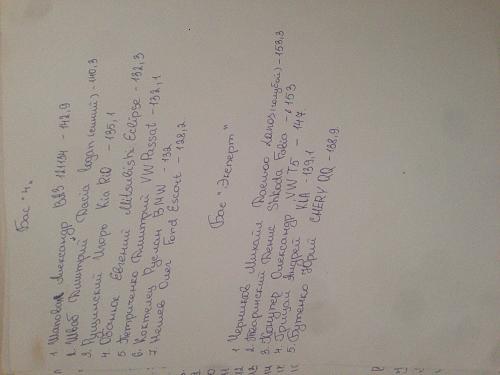 Бас "4"
1 Шаповал Александр ВАЗ 21134 - 142,9
2. Швab Дмитрий Dacia Logan (синий) - 140,3
3. Пушинский Игорь Kia Rio - 135,1
4. Обанюк Евгений Mitsubishi Eclipse - 132,3
5 Петриченко Дмитрий VW Passat - 132,1
6. Коктелец Руслан BMW - 132
7 Нешев Олег Ford Escort - 128,2
Бас "Эксперт"
1 Черников Михайл Daewoo Lanos (голубой) - 158,3
2. Тваринский Денис Shkoda Fabia - 153
3. Конупер Александр VW T5 - 147
4. Грицай Андрей KIA - 139,1
5. Бутенко Юрий CHERY QQ - 138,9